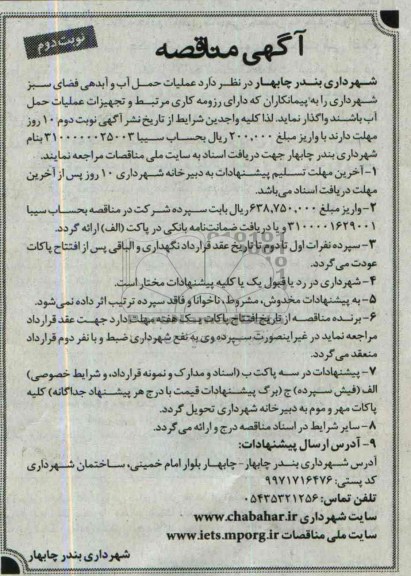 نوبت دوم
آگهی مناقصه
شهرداری بندر چابهار در نظر دارد عملیات حمل آب و آبدهی فضای سبز
شهرداری را به پیمانکاران که دارای رزومه کاری مرتبط و تجهیزات عملیات حمل
آب باشند واگذار نماید. لذا کلیه واجدین شرایط از تاریخ نشر آگهی نوبت دوم ۱۰ روز
مهلت دارند با واریز مبلغ ۲۰۰,۰۰۰ ریال بحساب سیبا ۳۱۰۰۰۰۰۰۲۵۰۰۳ بنام
شهرداری بندر چابهار جهت دریافت اسناد به سایت ملی مناقصات مراجعه نمایند.
۱- آخرین مهلت تسلیم پیشنهادات به دبیرخانه شهرداری ۱۰ روز پس از آخرین
مهلت دریافت اسناد می‌باشد.
۲- واریز مبلغ ۶۳۸,۷۵۰,۰۰۰ ریال بابت سپرده شرکت در مناقصه بحساب سیبا
۳۱۰۰۰۰۱۶۲۹۰۰۱ و یا دریافت ضمانت‌نامه بانکی در پاکت (الف) ارائه گردد.
۳- سپرده نفرات اول تا دوم تا تاریخ عقد قرارداد نگهداری و الباقی پس از افتتاح پاکات
عودت می‌گردد.
۴- شهرداری در رد یا قبول یک یا کلیه پیشنهادات مختار است.
۵- به پیشنهادات مخدوش، مشروط، ناخوانا و فاقد سپرده ترتیب اثر داده نمی‌شود.
۶- برنده مناقصه از تاریخ افتتاح پاکات یک هفته مهلت دارد جهت عقد قرارداد
مراجعه نماید در غیر اینصورت سپرده وی به نفع شهرداری ضبط و با نفر دوم قرارداد
منعقد می‌گردد.
۷- پیشنهادات در سه پاکت ب (اسناد و مدارک و نمونه قرارداد، و شرایط خصوصی)
الف (فیش سپرده) ج (برگ پیشنهادات قیمت با درج هر پیشنهاد جداگانه) کلیه
پاکات مهر و موم به دبیرخانه شهرداری تحویل گردد.
۸- سایر شرایط در اسناد مناقصه درج و ارائه می‌گردد.
۹- آدرس ارسال پیشنهادات:
آدرس شهرداری بندر چابهار- چابهار بلوار امام خمینی، ساختمان شهرداری
کد پستی: ۹۹۷۱۷۱۶۴۷۶
تلفن تماس: ۰۵۴۳۵۳۲۱۲۵۶
سایت شهرداری www.chabahar.ir
سایت ملی مناقصات www.iets.mporg.ir
شهرداری بندر چابهار